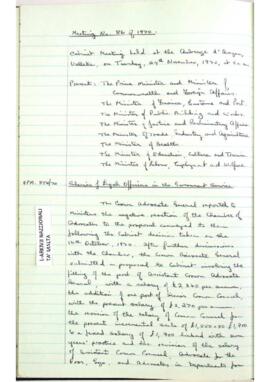 Meeting No. 86 of 1970.
Cabinet Meeting held at the Auberge d'Aragon,
Valletta, on Tuesday, November, 1970, at
Present: The Prime Minister and Minister of
Commonwealth and Foreign Affairs.
The Minister of Finance, Customs and Port.
The Minister of Public Building and Works.
The Minister of Justice and Parliamentary Affairs
The Minister of Trade, Industry and Agriculture
The Minister of Health
The Minister of Education, Culture and Tourism
The Minister of Labour, Employment and Welfare.
Salaries of Legal Officers in the Government Service
The Crown Advocate General reported to
Ministers the negative reaction of the Chamber of
Advocates to the proposal conveyed to them
following the Cabinet decision taken on the
October, 1970. After further discussions
with the Chamber, the Crown Advocate General
submitted a proposal to Cabinet involving the
filling of the post of Assistant Crown Advocate
General, with a salary of
the addition of one post of Senior Crown Counsel,
with the present salary of per annum
the revision of the salary of Crown Counsel for
the present incremental scale of
to a fixed salary of
years' practice and the revision of the salary
of Assistant Crown Counsel, Advocate for the
Poor, Gozo, and Advocates in Departments from
L-ARKIVJI NAZZJONALI
TA' MALTA